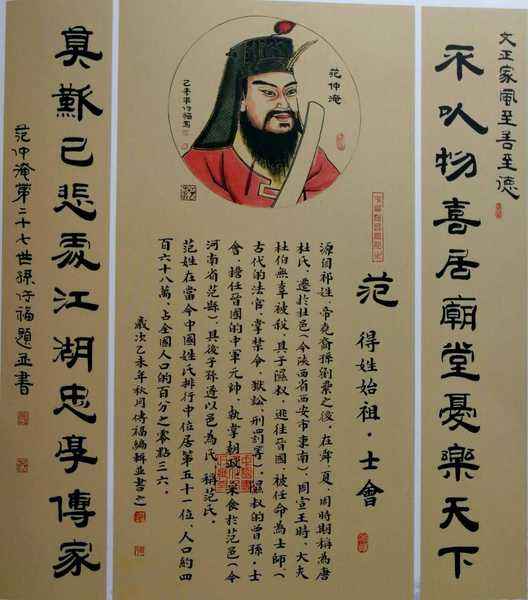 文正家風至善至德
不以物喜居廟堂憂樂天下
范仲淹
范
得姓始祖·士會
源自祁姓,帝堯裔孫劉累之後,在夏、周時期稱為唐
杜氏,遷於杜邑(今陝西省西安市東南),周宣王時,大夫
杜伯無辜被殺,其子隰叔,逃往晉國,被任命為士師,(
古代的法官,掌禁令、獄訟、刑罰等),隰叔的曾孫·士
會,擔任晉國的中軍元帥,執掌朝政,采食於范邑(今
河南省范縣),其後子孫遂以邑為氏,稱范氏。
范姓在當今中國姓氏排行中位居第五十一位,人口約四
百六十八萬,占全國人口的百分之零點三六。
歲次乙未年秋月傳福編輯並書之
莫歎己悲處江湖忠孝傳家
范仲淹第二十七世孫仔福題並書